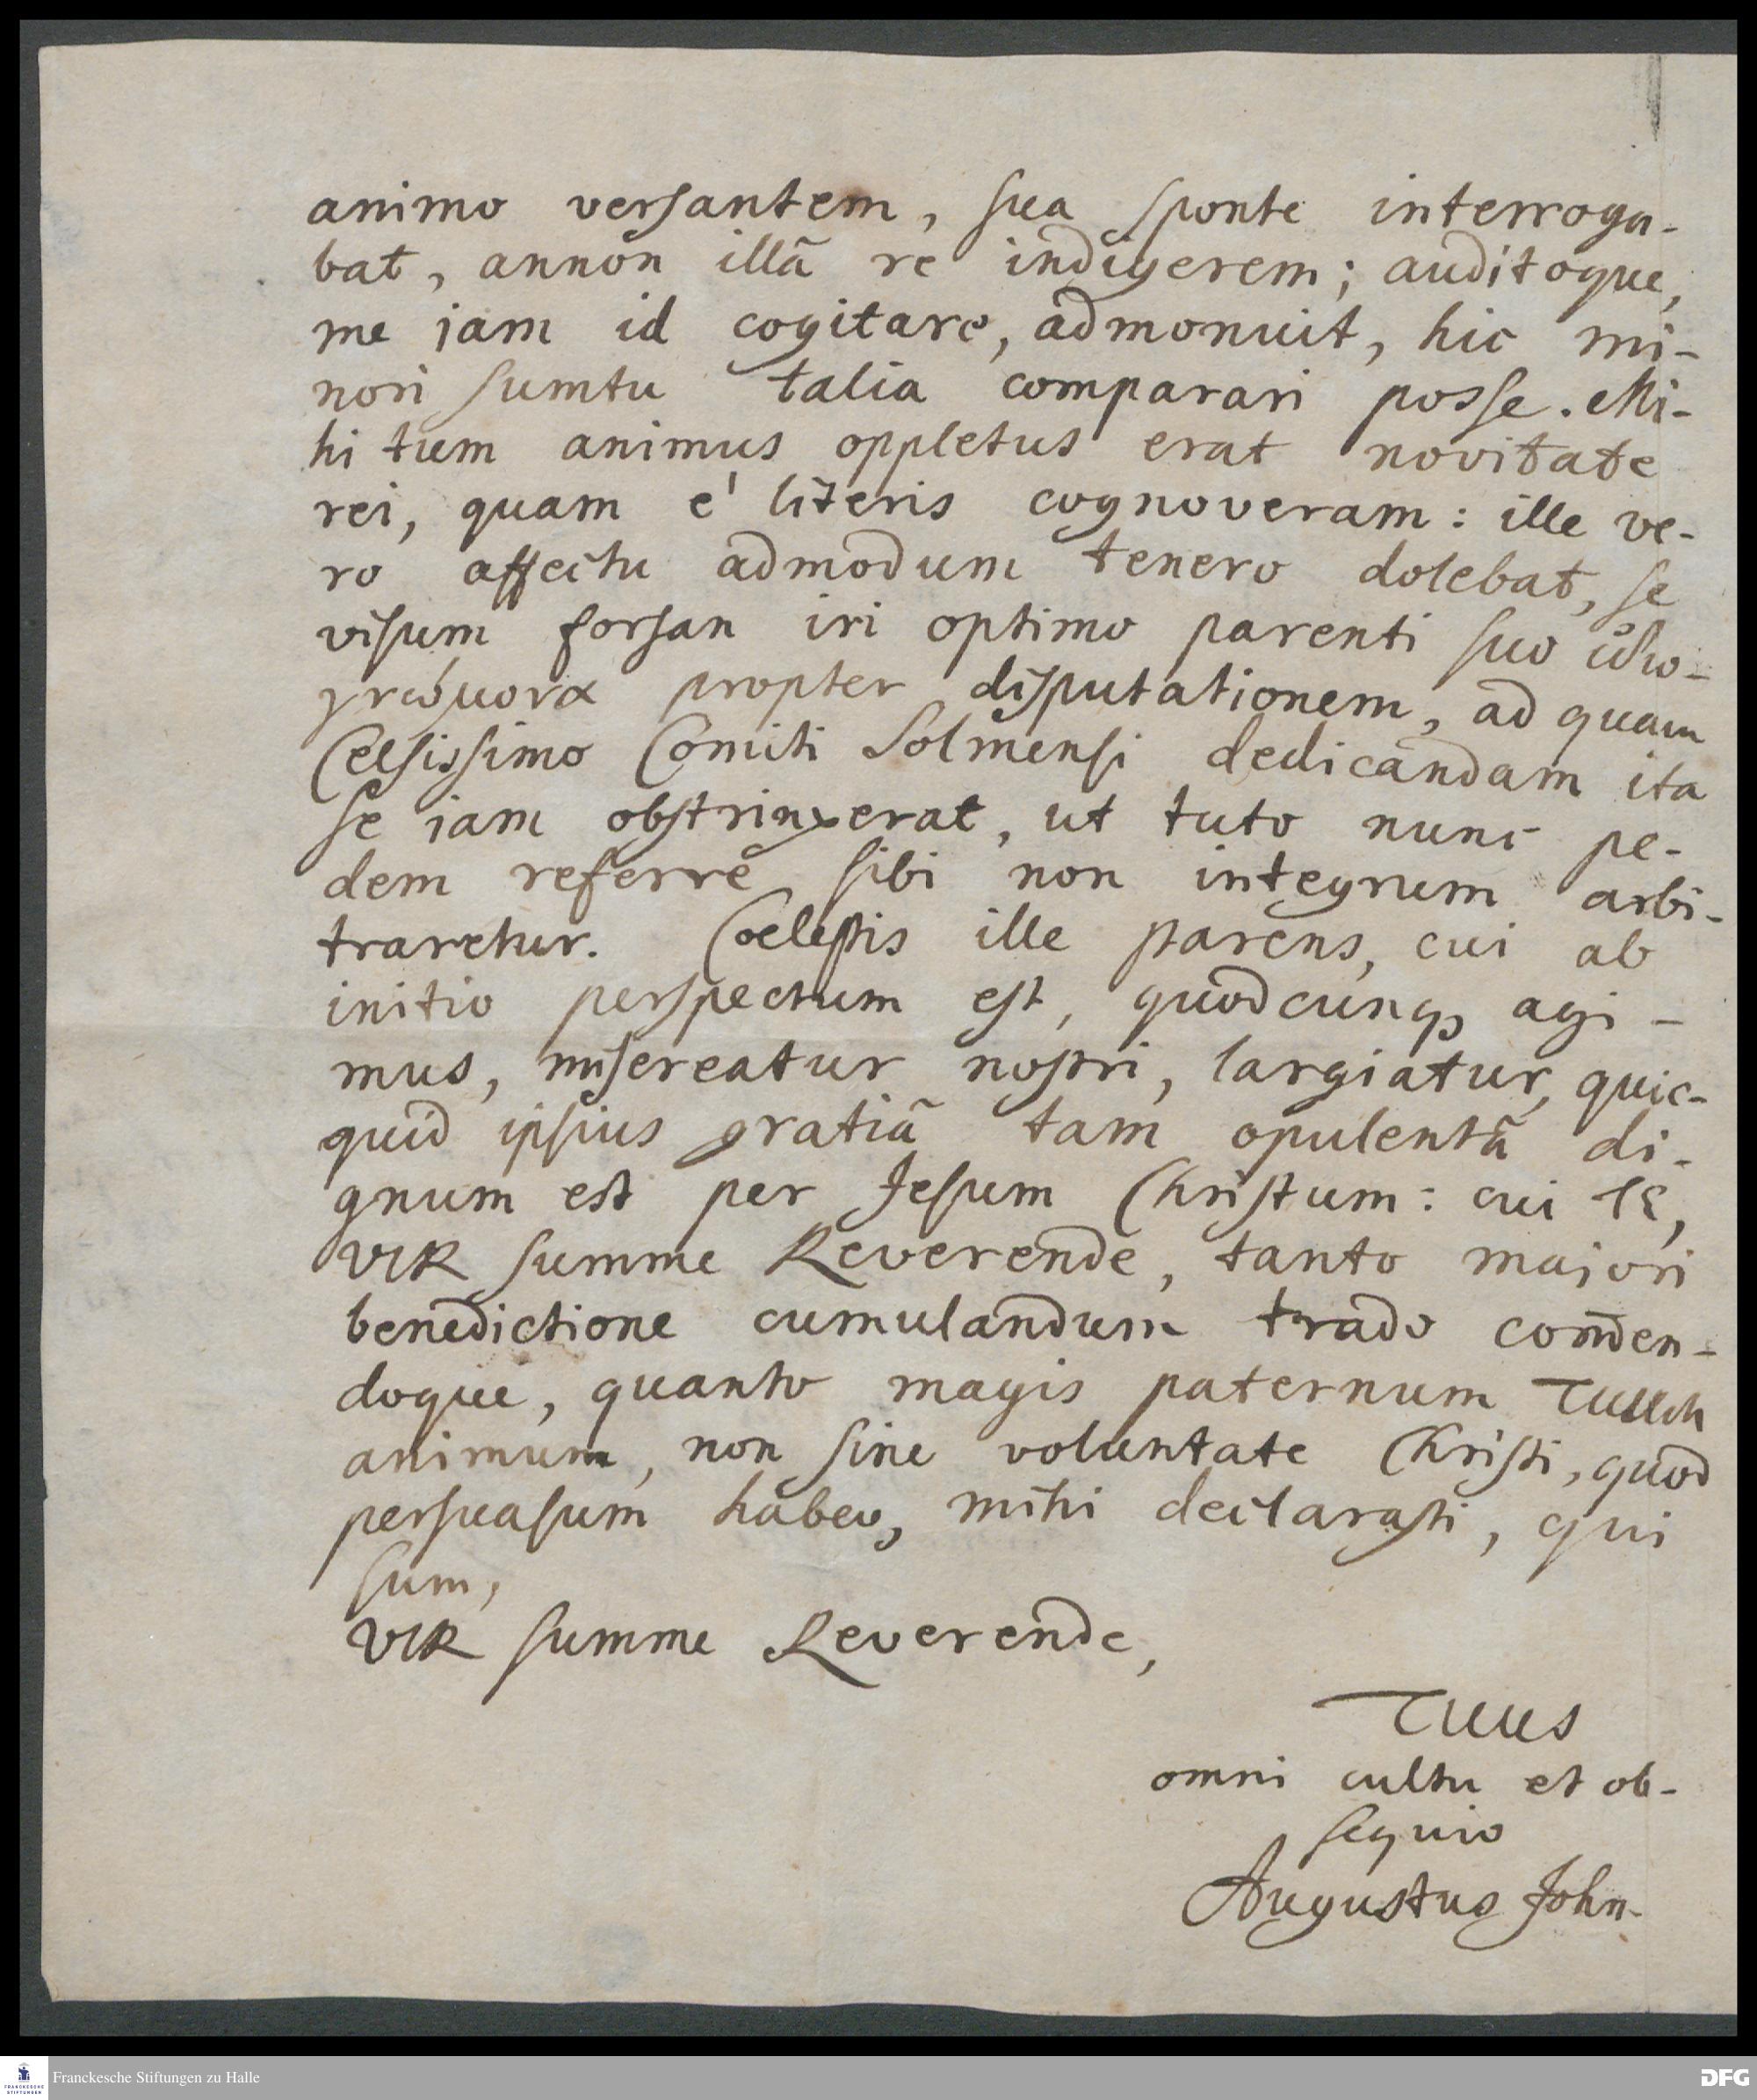 animo versantem, sua sponte interroga-
bat, annon illâ re indigerem; auditoque,
me jam id cogitare, admonuit, hic mi-
nori sumtu talia comparari posse. Mi-
hi tum animus oppletus erat novitate
rei, quam è literis cognoveram: ille ve-
ro affectu admodum tenero dolebat, se
visum forsan iri optimo parenti suo ἰδιο-
γνώμονα propter disputationem, ad quam
Celsissimo Comiti Solmensi dedicandam ita
se jam obstrinxerat, ut tuto nunc pe-
dem referre sibi non integrum arbi-
traretur. Coelestis ille parens, cui ab
initio perspectum est, quodcunqꝫ agi-
mus, misereatur nostri, largiatur, quic-
quid ipsius gratiâ tam opulentâ di-
gnum est per Jesum Christum: cui TE,
VIR summe Reverende, tanto majori
benedictione cumulandum trado com̄en-
doque, quanto magis paternum TUUM
animum, non sine voluntate Christi, quod
persuasum habeo, mihi declarasti, qui
sum,
VIR summe Reverende,
TUUS
omni cultu et ob-
sequio
Augustus John.
Franckesche Stiftungen zu Halle
FRANCKESCHE
STIFTUNGEN
DFG